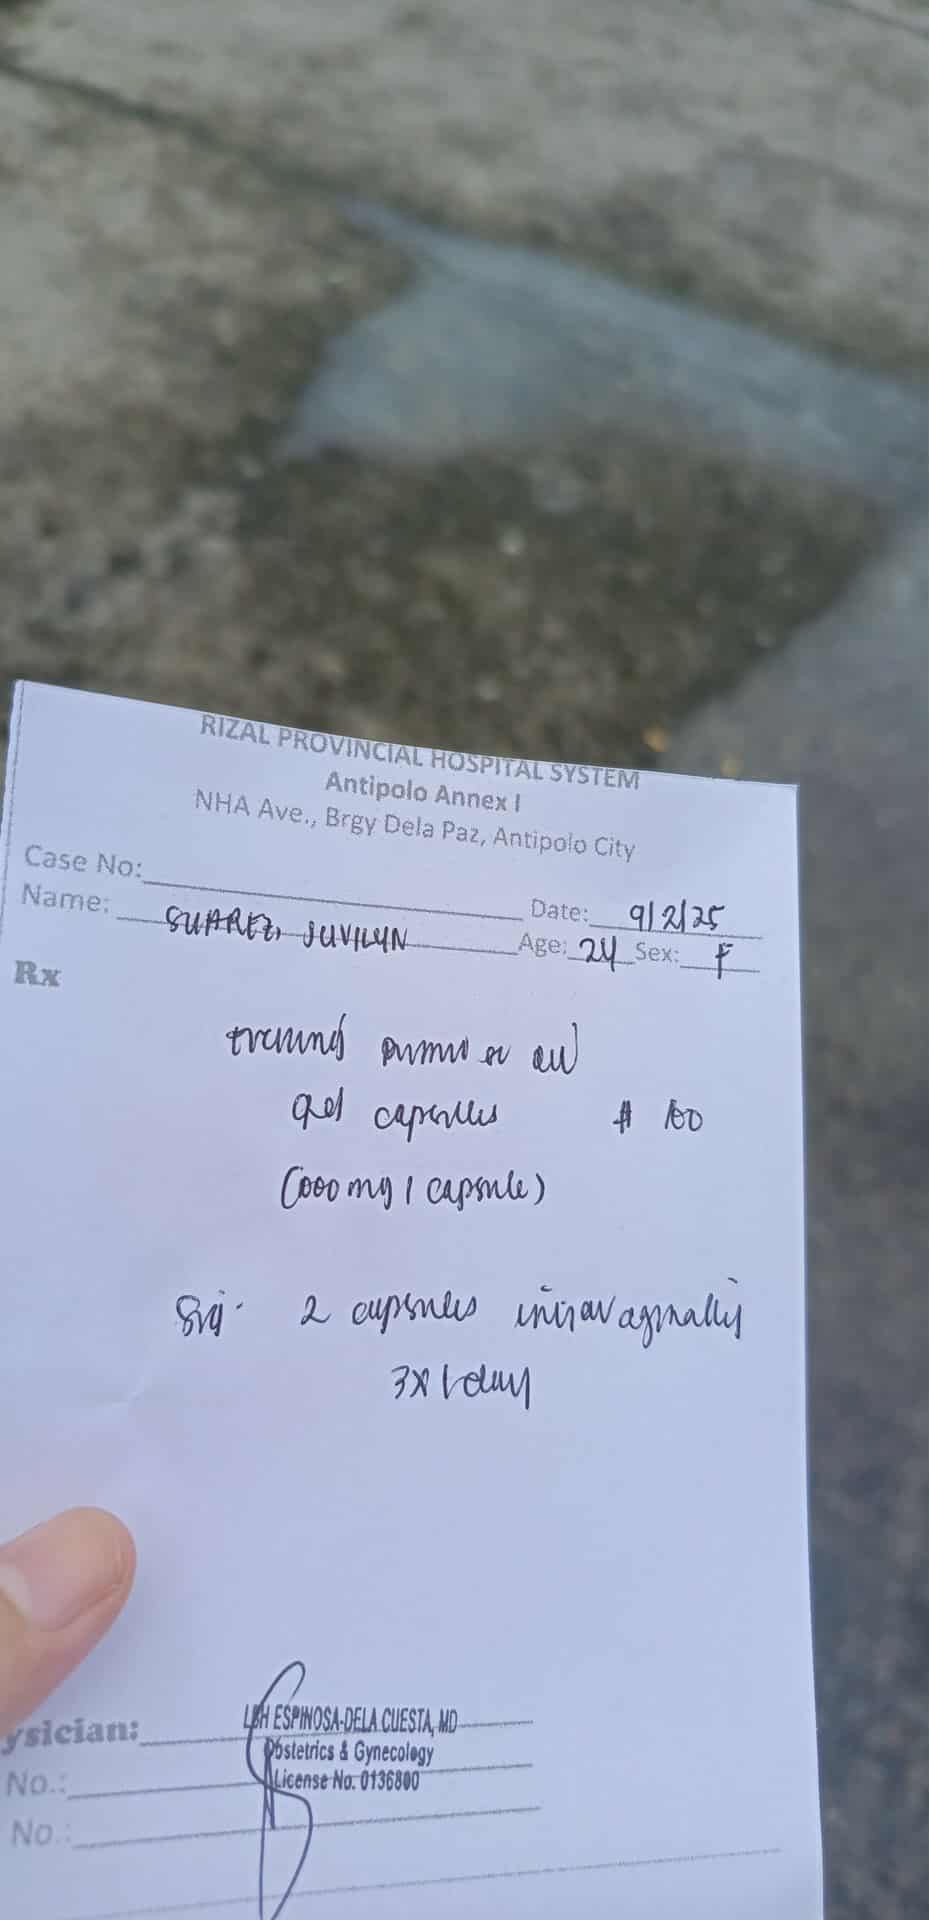 RIZAL PROVINCIAL HOSPITAL SYSTEM
Antipolo Annex I
NHA Ave., Brgy Dela Paz, Antipolo City
Case No:
Date: 9/2/25
Name: SUAREZ, JUVILYN
Age: 24 Sex: F
Rx
evening primrose oil
gel capsules #
(1000 mg / capsule)
Sig. 2 capsules intravaginally
3x / day
ysician:
ESPINOSA-DELA CUESTA, MD
Obstetrics & Gynecology
No.:
License No. 0136800
No.: